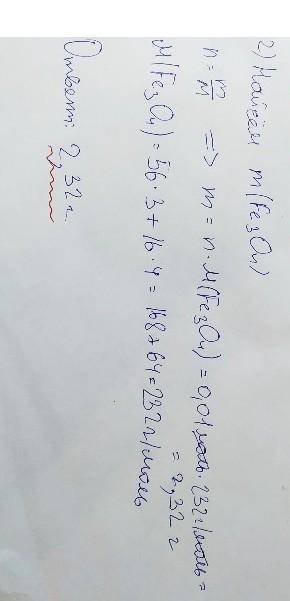 2) Найдём m(Fe₃O₄)
n = m/M => m = n · M(Fe₃O₄) = 0,01 моль · 232 г/моль =
= 2,32 г
M(Fe₃O₄) = 56 · 3 + 16 · 4 = 168 + 64 = 232 г/моль
Ответ: 2,32 г.